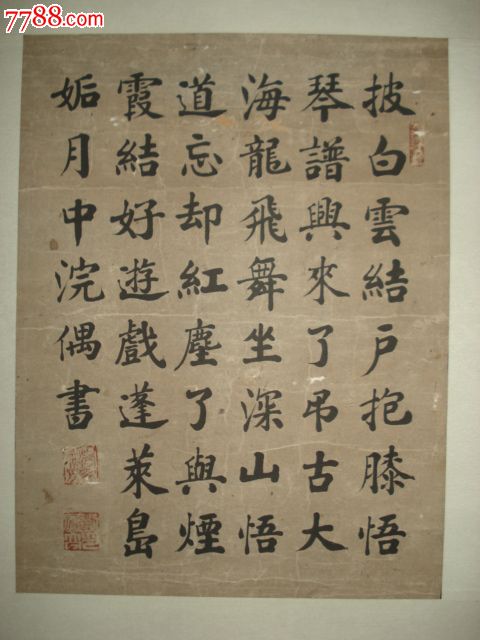 7788.com
披白雲結戶抱膝悟
琴譜興來了吊古大
海龍飛舞坐深山悟
道忘却紅塵了與煙
霞結好遊戲蓬萊島
姤月中浣偶書